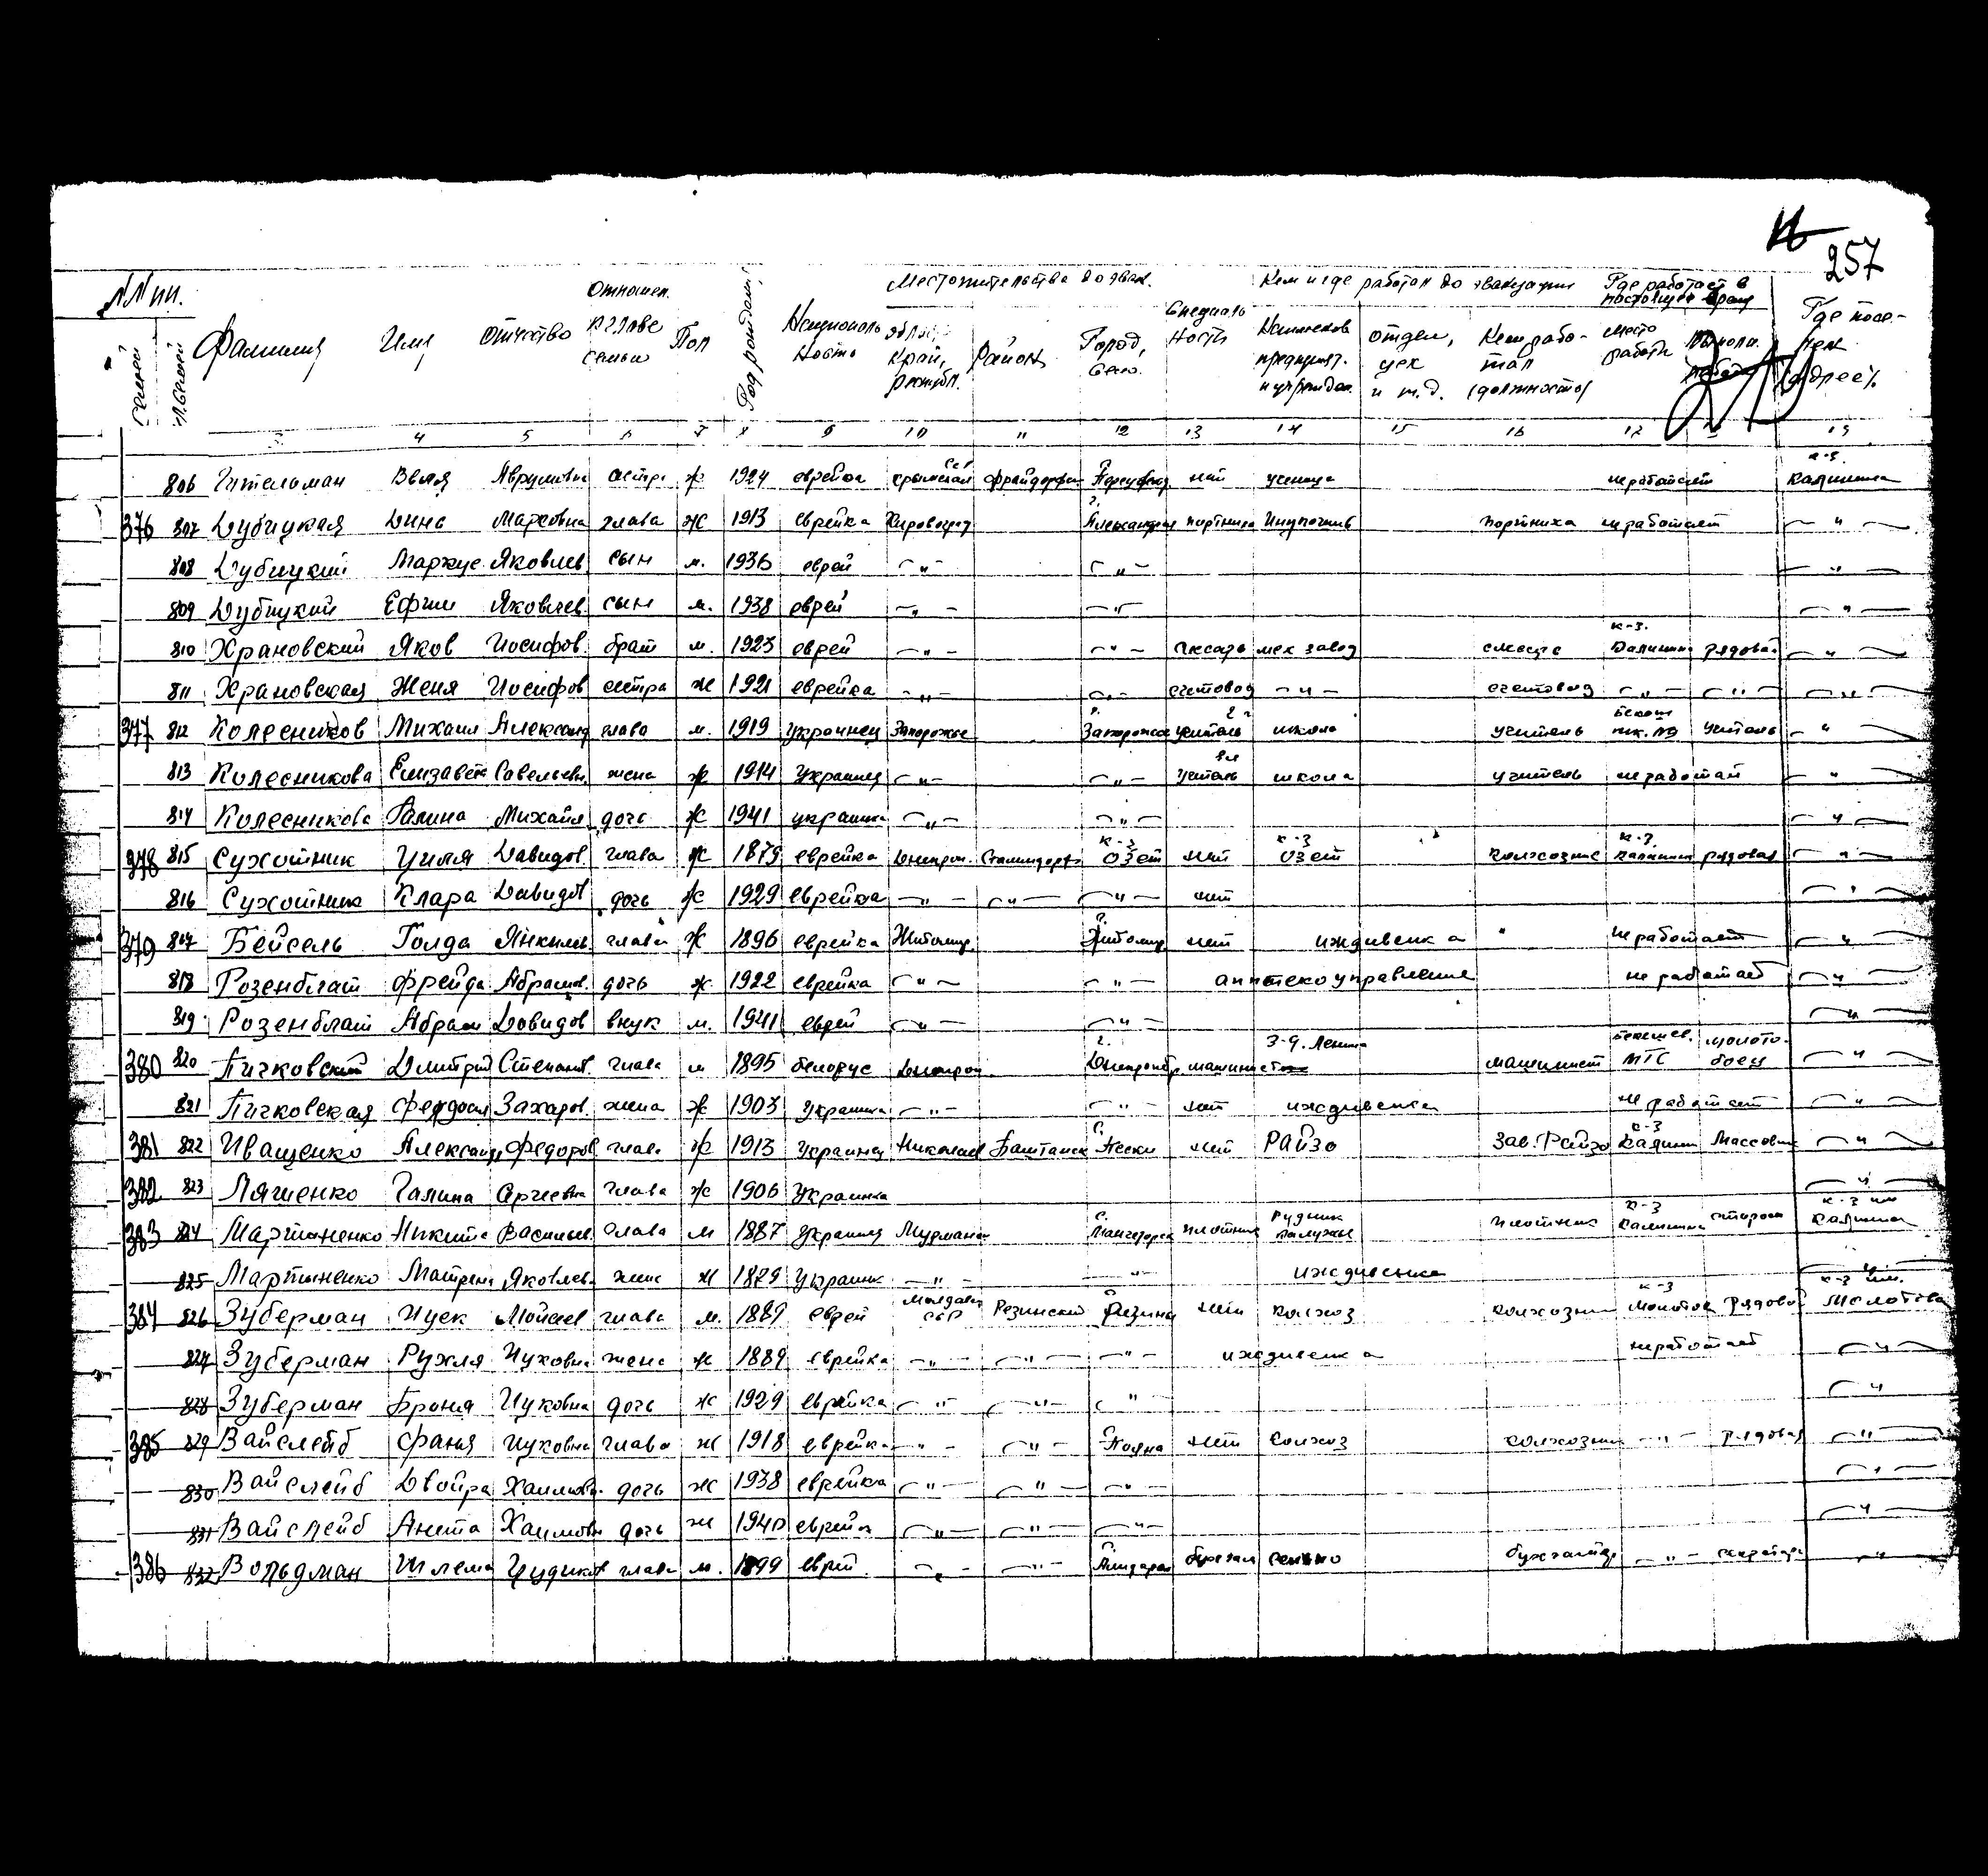 257
№№ пп.
семей
Фамилия Имя Отчество Отношен. к главе семьи Пол Год рождения Националь ность Местожительства до эвак. област край, республ. Район Город, село. Специаль ность Кем и где работал до эвакуации Наименов предприят. и учрежден. отдел, цех и т.д. Кем рабо- тал (должность) Где работает в настоящее время место работы Где посе- лен (адрес)
3 4 5 6 7 8 9 10 11 12 13 14 15 16 17 19
806 Гительман Аврумовна сестра ж 1924 еврейка крымская нет ученица не работает к-з. Калинина
376 807 Дубицкая Дина Марковна глава ж 1913 еврейка Кировоград портниха портниха не работает — " —
808 Дубицкий Маркус Яковлев сын м. 1936 еврей — " — — " — — " —
809 Дубицкий Ефим Яковлев сын м. 1938 еврей — " — — " — — " —
810 Храновский Яков Иосифов брат м. 1923 еврей — " — — " — слесарь мех завод слесарь к-з. Калинина рядовой — " —
811 Храновская Женя Иосифов сестра ж 1921 еврейка — " — — " — счетовод — " — счетовод — " — — " — — " —
377 812 Колесников Михаил Александ глава м. 1919 украинец Запорожье г. Запорожье учитель школа учитель учитель — " —
813 Колесникова Елизавета Савельевн. жена ж 1914 украинка — " — — " — учитель школа учитель не работает — " —
814 Колесникова Галина Михайл. дочь ж 1941 украинка — " — — " — — " —
378 815 Сухотник Циля Давидов. глава ж 1879 еврейка Днепроп. Сталиндорф к-з Озет нет к-з Озет колхозник к-з. Калинина рядовая — " —
816 Сухотник Клара Давидов дочь ж 1929 еврейка — " — — " — — " — нет — " —
379 817 Бейсель Голда Янкилев глава ж 1896 еврейка Житомир г. Житомир нет иждивенка не работает — " —
818 Розенблат Фрейда Абрамов. дочь ж 1922 еврейка — " — — " — аптекоуправление не работает — " —
819 Розенблат Абрам Давидов внук м. 1941 еврей — " — — " — — " —
380 820 Пичковский Дмитрий Степанов. глава м 1895 белорус Днепроп. г. машинист З-д. Ленина машинист МТС молото- боец — " —
821 Пичковская Федосья Захаров. жена ж 1903 украинка — " — — " — нет иждивенка не работает — " —
381 822 Иващенко Александр Федоров глава ж 1913 украинец Николаев Баштанск с. Пески нет Райзо Зав. Райзо к-з Калинин — " —
382 823 Ляшенко Галина Сергеевна глава ж 1906 украинка — " —
383 824 Мартыненко Никита Васильев. глава м 1887 украинец Мурманск плотник Рудник плотник к-з Калинина сторож к-з им Калинина
825 Мартыненко Матрена Яковлев. жена ж 1879 украинк — " — — " — иждивенка — " —
384 826 Зуберман Ицек Мойсеев глава м. 1889 еврей Молдавск ССР Резинский Резина нет колхоз колхозник к-з Молотов рядовой к-з им. Молотова
827 Зуберман Рухля Ицковна жена ж 1889 еврейка — " — — " — — " — иждивенка не работает — " —
828 Зуберман Броня Ицковна дочь ж 1929 еврейка — " — — " — — " — — " —
385 829 Вайслейб Фаня Ицковна глава ж 1918 еврейка — " — — " — нет колхоз колхозник — " — рядовая — " —
830 Вайслейб Двойра Хаимовн. дочь ж 1938 еврейка — " — — " — — " — — " —
831 Вайслейб Анета Хаимовн дочь ж 1940 еврейк — " — — " — — " — — " —
386 832 Вольдман Шлема глава м. 1899 еврей — " — — " — сельпо бухгалтер — " — секретарь — " —